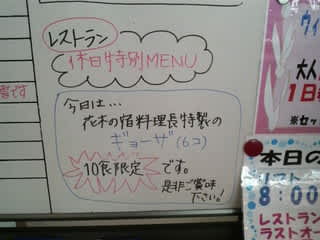 レストラン
休日特別MENU
今日は…
花木の宿料理長特製の
ギョーザ(6コ)
10食限定です。
是非ご賞味
下さい!
本日の
8:00
レストラン
ラストオー